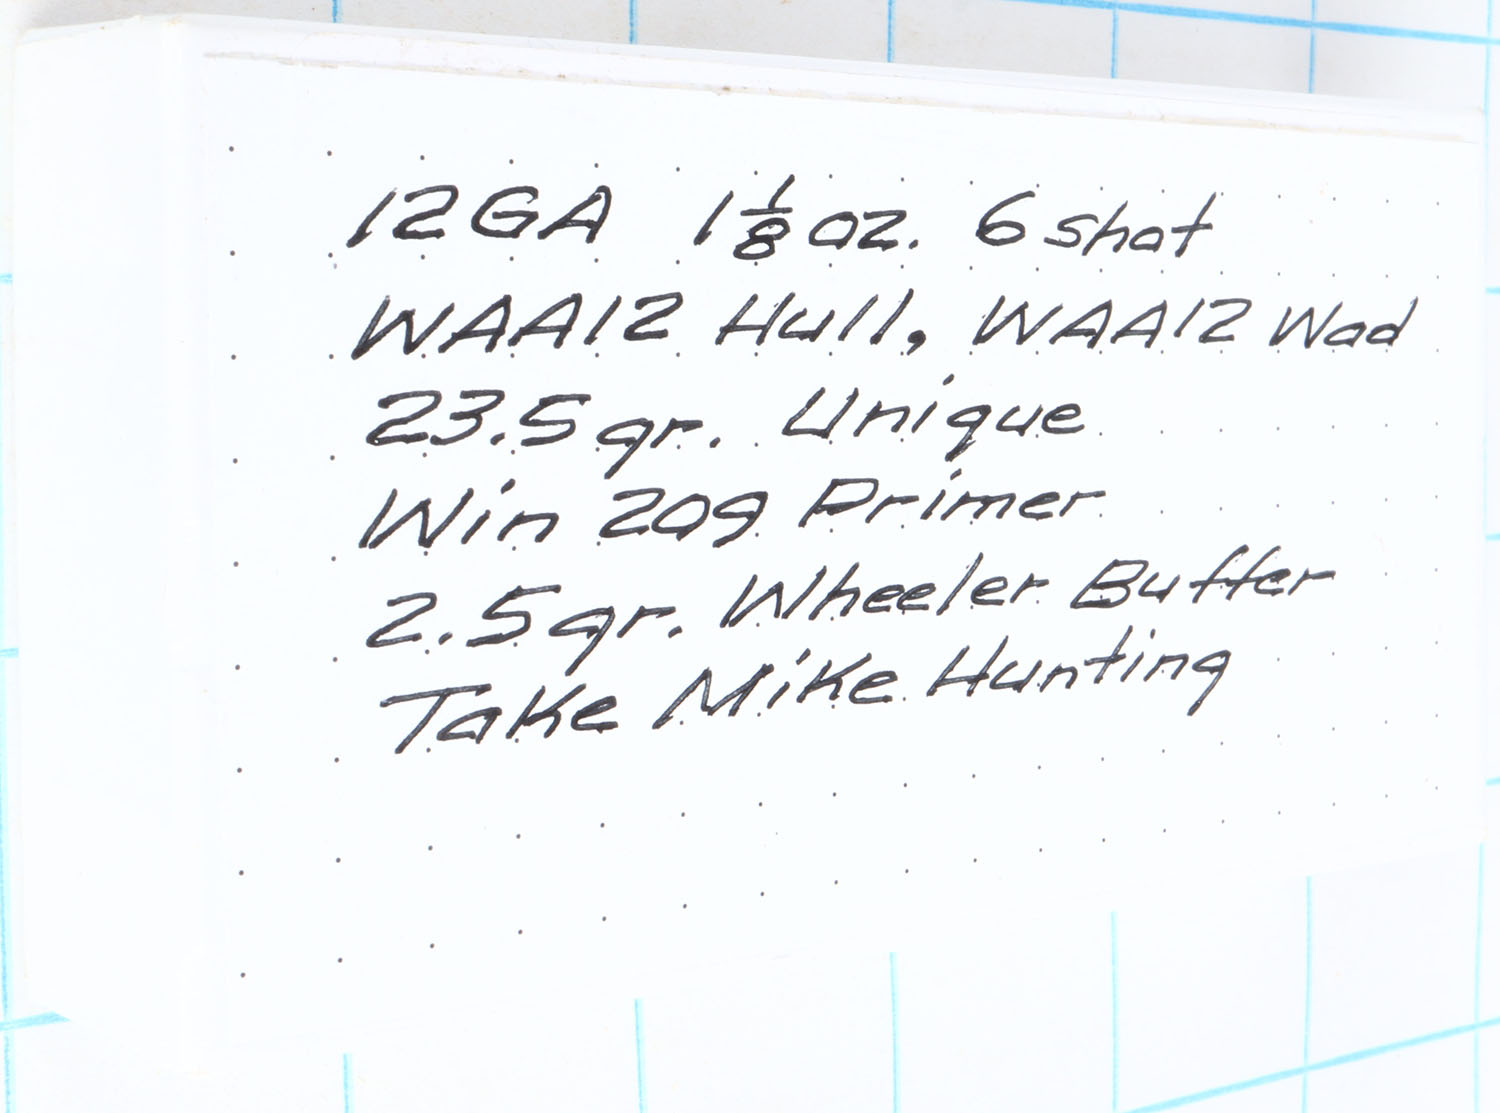 12GA 1 1/8 oz. 6 shot
WAA12 Hull, WAA12 Wad
23.5 gr. Unique
Win 209 Primer
2.5 gr. Wheeler Buffer
Take Mike Hunting